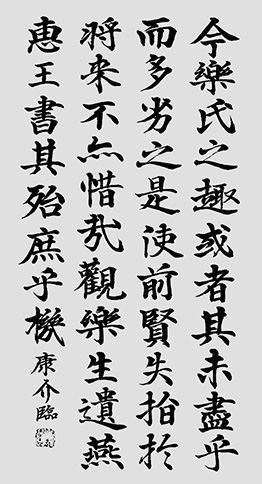 今樂氏之趣或者其未盡乎
而多劣之是使前賢失指於
將来不亦惜哉觀樂生遺燕
惠王書其殆庶乎機 康介臨